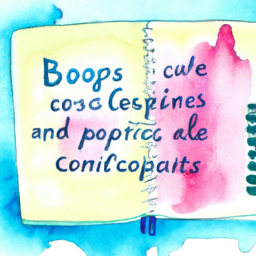 Boops cule
cosc Cespines
and poptic ale
Conifcopaits